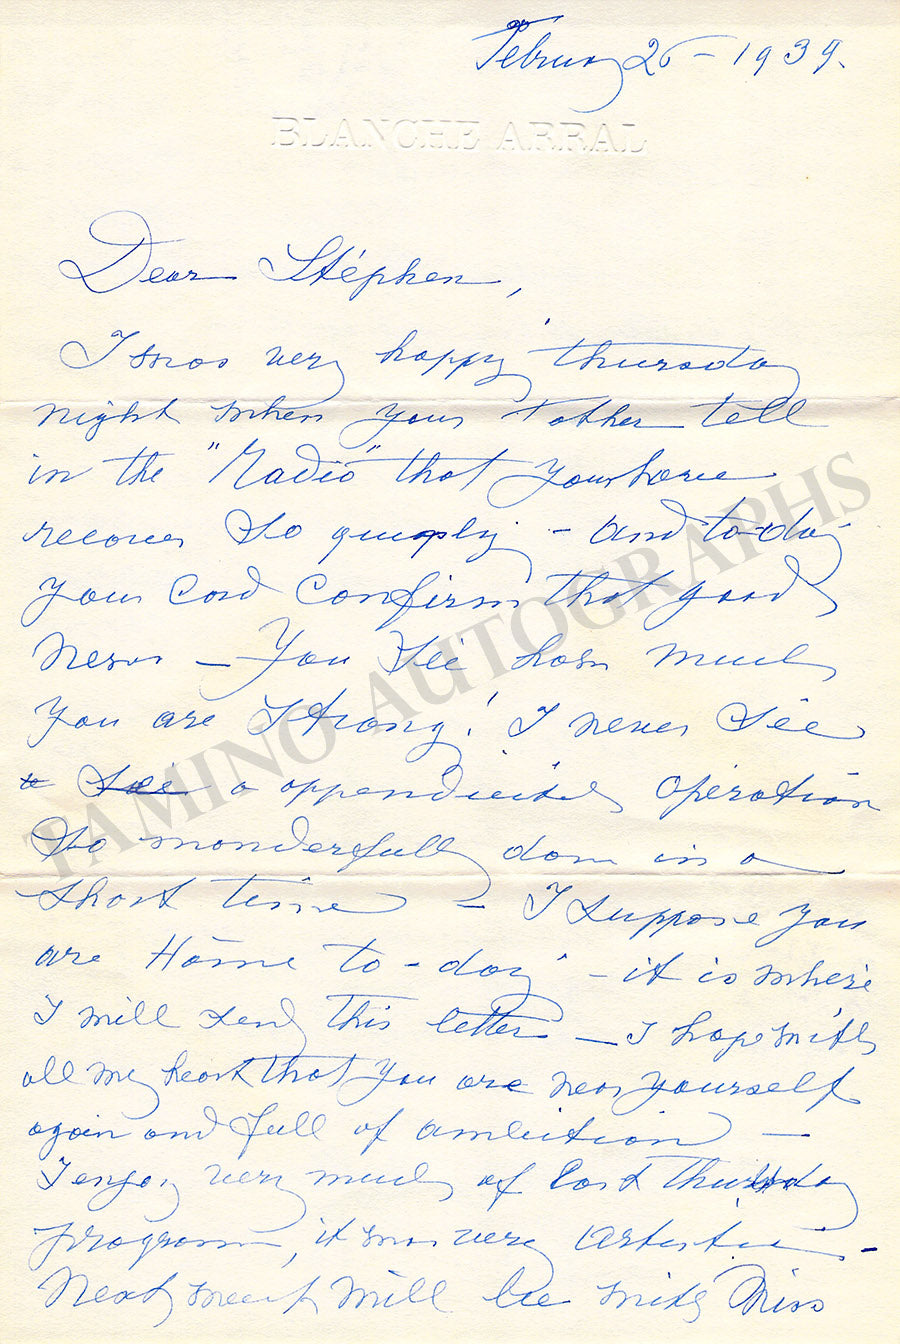 February 26 - 1939.
BLANCHE ARRAL
Dear Stéphen,
I was very happy thursday
night when your Father tell
in the "Radio" that you have
recover so - and to-day
your Card Confirm that good
News - You See how much
you are strong! I never See
a appendicitis Opération
so wonderfully done in a
short time - I suppose you
are Home to-day - it is where
I will send this letter - I hope with
all my heart that you are now yourself
again and full of ambition -
I enjoy very much of last Thursday
program, it was very Artistic -
Next week will be with Miss
TAMINO AUTOGRAPHS